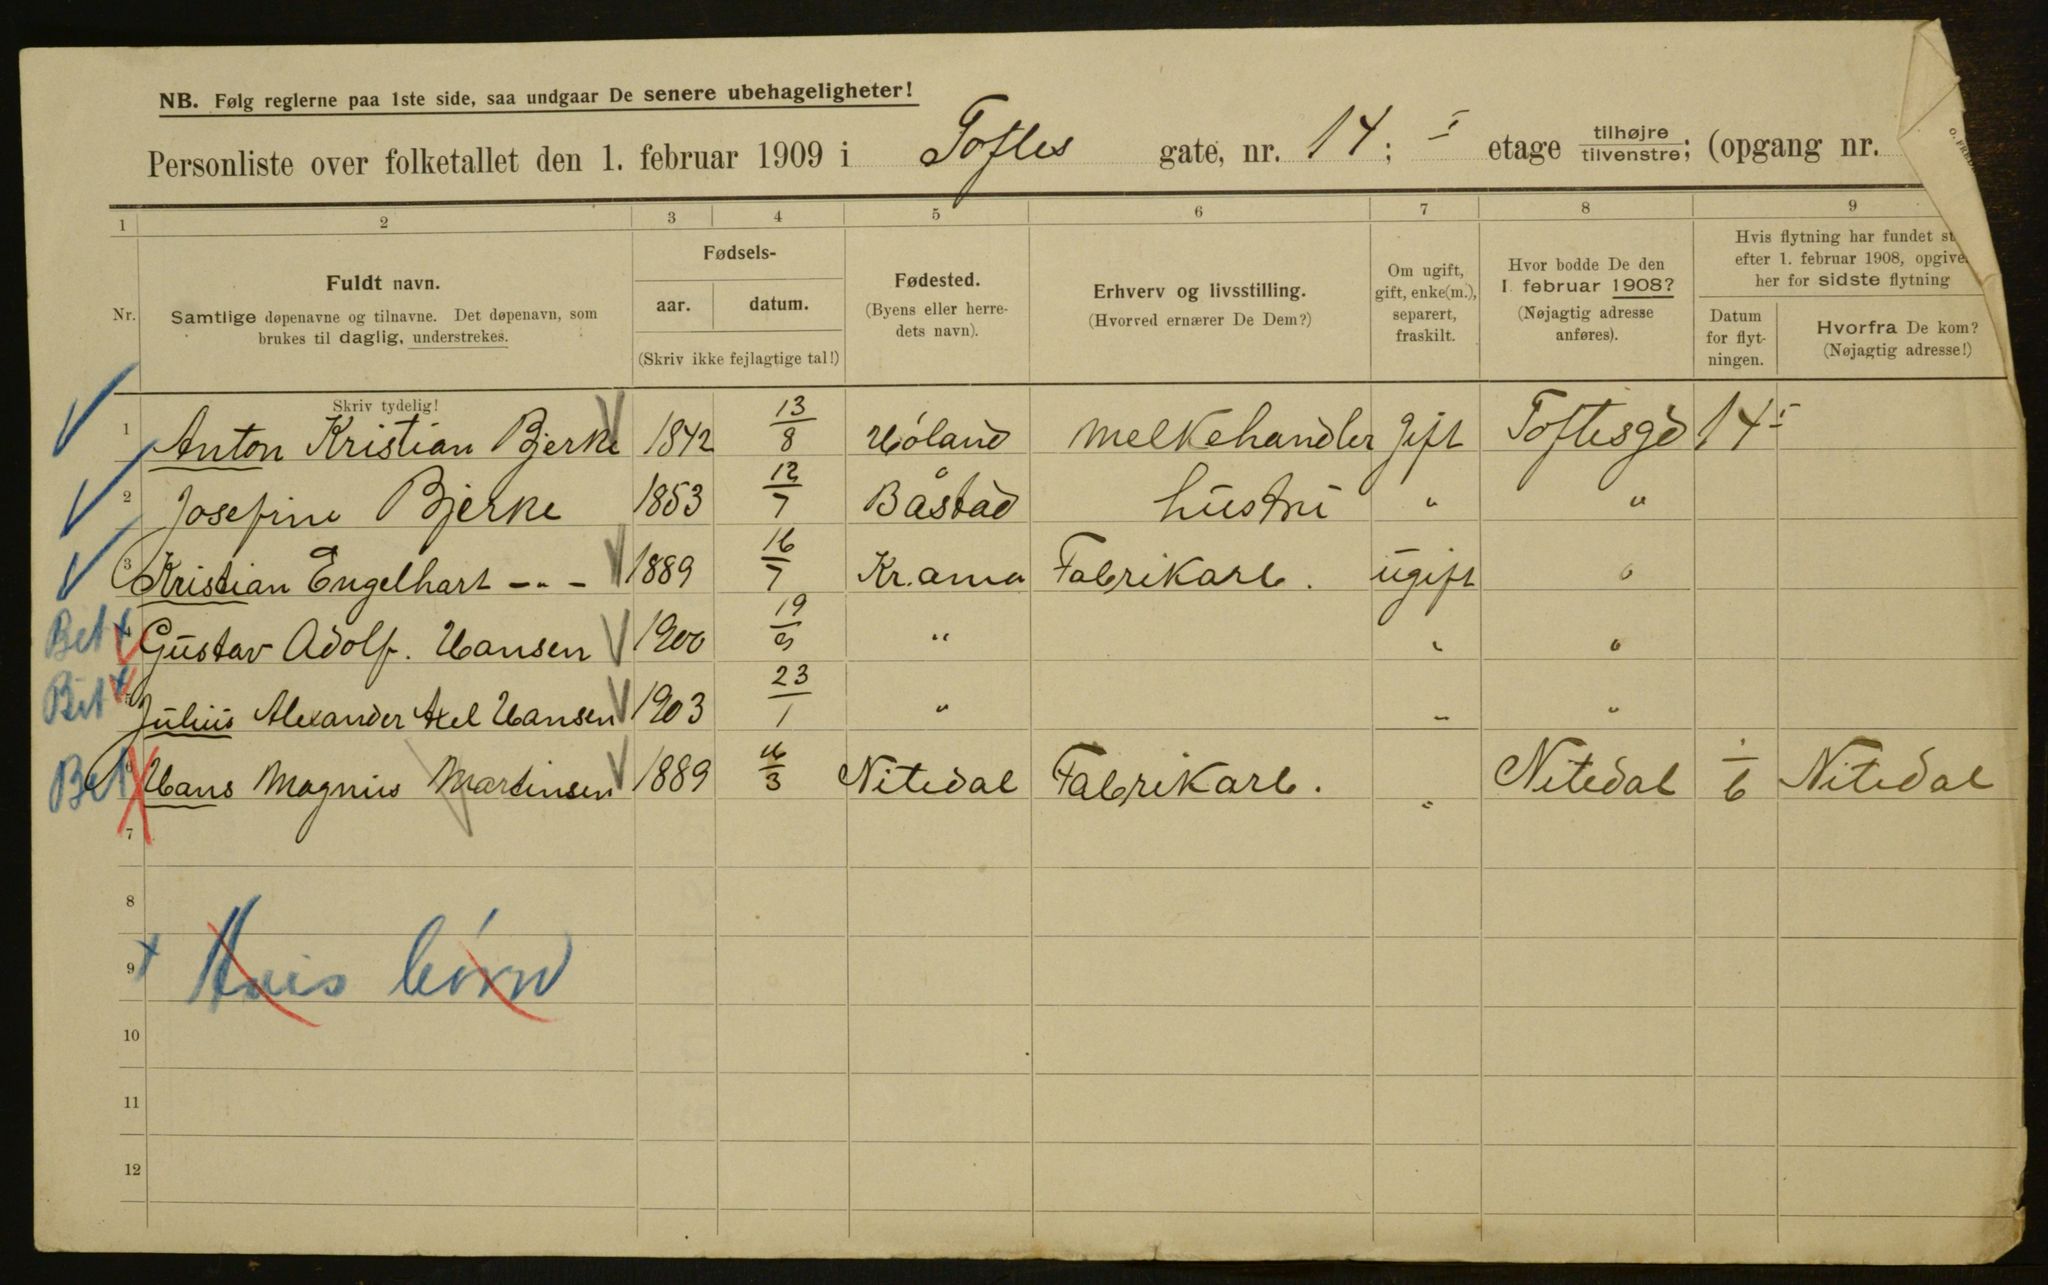 NB. Følg reglerne paa 1ste side, saa undgaar De senere ubehageligheter!
Personliste over folketallet den 1. februar 1909 i Toftes gate, nr. 14; I etage tilhøjre/tilvenstre; (opgang nr.
1 2 3 4 5 6 7 8 9
Nr.
Fuldt navn.
Samtlige døpenavne og tilnavne. Det døpenavn, som
brukes til daglig, understrekes.
Fødsels-
aar. datum.
(Skriv ikke fejlagtige tal!)
Fødested.
(Byens eller herre-
dets navn).
Erhverv og livsstilling.
(Hvorved ernærer De Dem?)
Om ugift,
gift, enke(m.),
separert,
fraskilt.
Hvor bodde De den
1 februar 1908?
(Nøjagtig adresse
anføres).
Hvis flytning har fundet st
efter 1. februar 1908, opgive
her for sidste flytning
Datum
for flyt-
ningen.
Hvorfra De kom?
(Nøjagtig adresse!)
Skriv tydelig!
1 Anton Kristian Bjerke 1842 13/8 Høland Melkehandler gift Toftesgd 14 I
2 Josefine Bjerke 1853 12/7 Båstad Hustru " "
3 Kristian Engelhart -"- 1889 16/7 Kr.ania Fabrikarb. ugift "
Bet 4 Gustav Adolf. Hansen 1900 19/9 " " "
Bet 5 Julius Alexander Axel Hansen 1903 23/1 " " "
Bet 6 Hans Magnus Martinsen 1889 /3 Nitedal Fabrikarb. " Nitedal 1/6 Nitedal
7
8
9 + børn
10
11
12